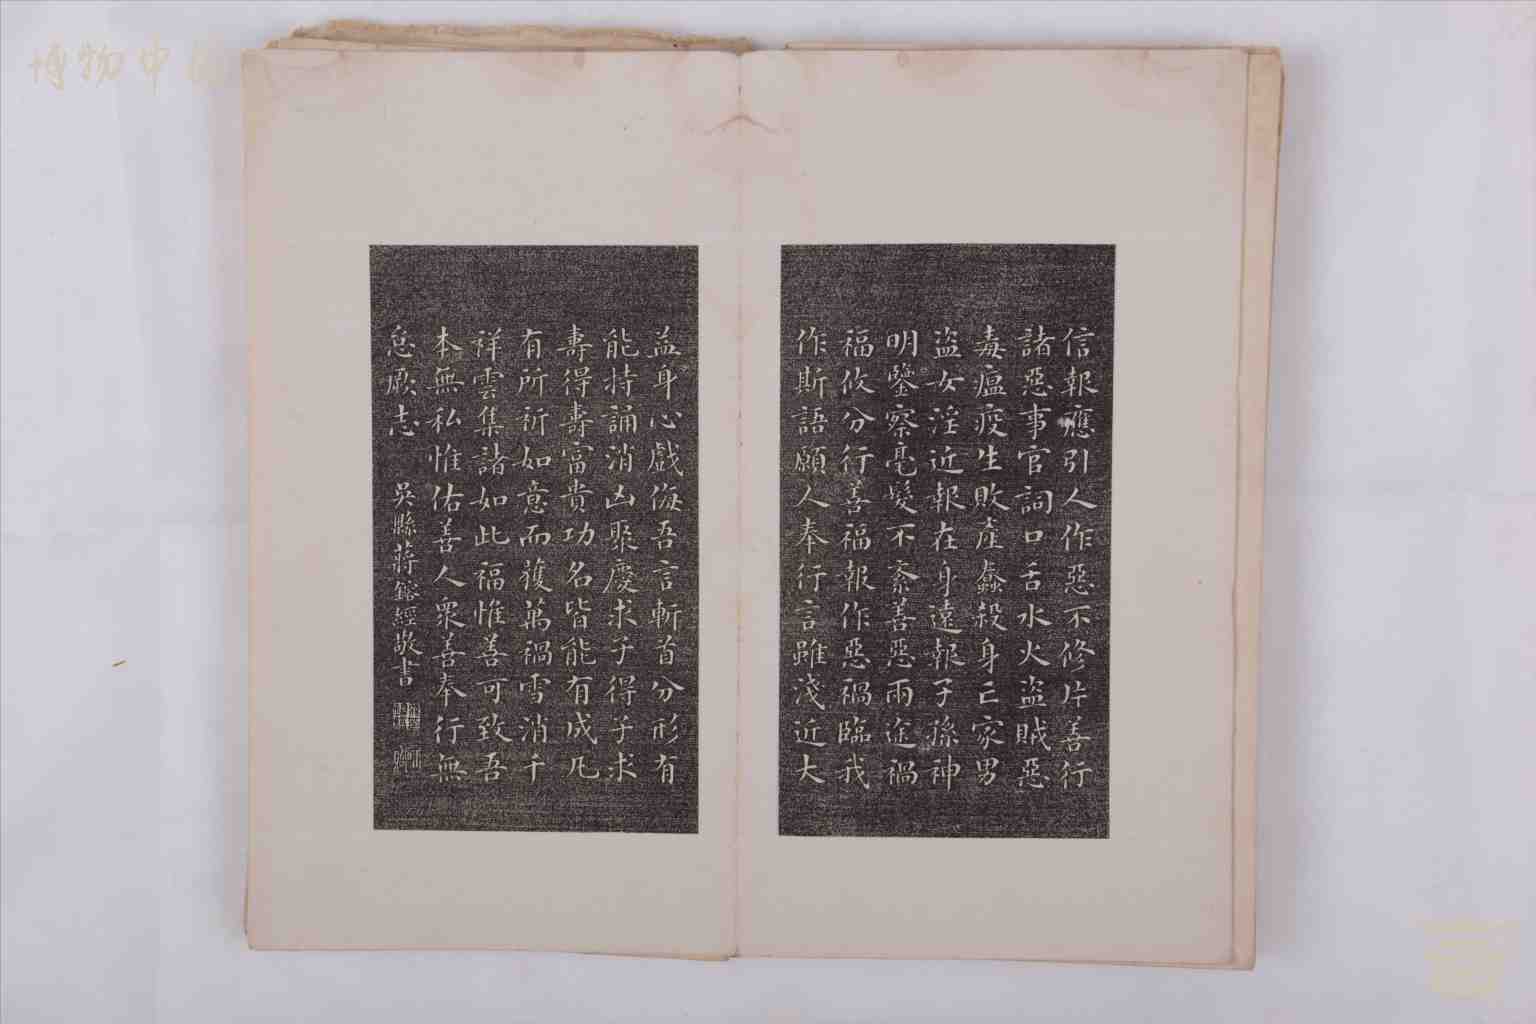 信報應引人作惡不修片善行
諸惡事官詞口舌水火盜賊惡
毒瘟疫生敗產蠢殺身亡家男
盜女淫近報在身遠報子孫神
明鑒察毫髮不紊善惡兩途禍
福攸分行善福報作惡禍臨我
作斯語願人奉行言雖淺近大
益身心戲侮吾言斬首分形有
能持誦消凶聚慶求子得子求
壽得壽富貴功名皆能有成凡
有所祈如意而獲萬禍雪消千
祥雲集諸如此福惟善可致吾
本無私惟佑善人衆善奉行無
怠厥志
吳縣蔣鎔經敬書
博物中